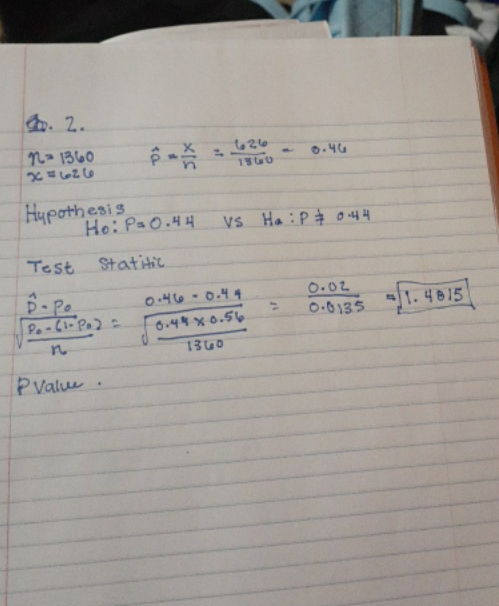 2.
n = 1360 p̂ = x/n = 626/1360 = 0.46
x = 626
Hypothesis
Ho: P = 0.44 VS Ha: P ≠ 0.44
Test Statitic
p̂ - po / √(po - (1 - po) / n) = 0.46 - 0.44 / √(0.44 x 0.56 / 1360) = 0.02 / 0.0135 = 1.4815
P value.